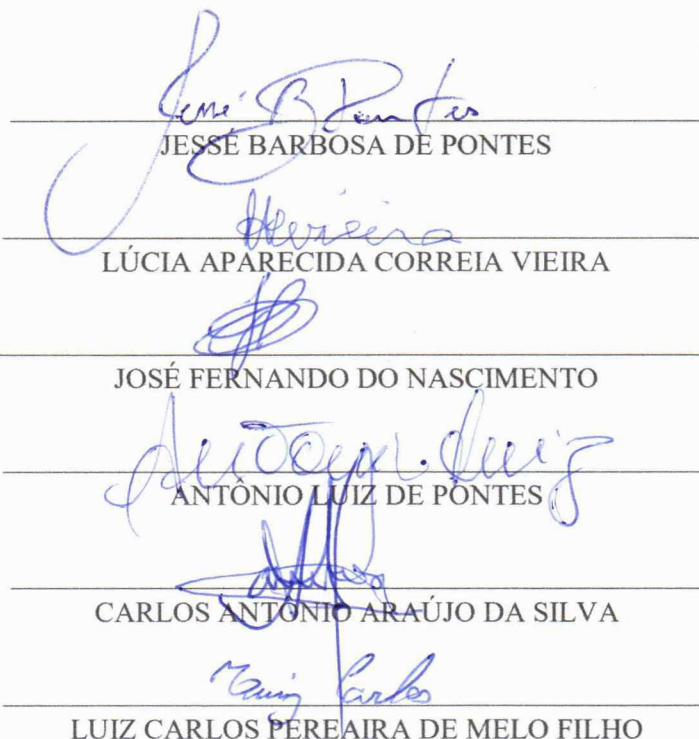 Jessé B Pontes
JESSÉ BARBOSA DE PONTES
LÚCIA APARECIDA CORREIA VIEIRA
JOSÉ FERNANDO DO NASCIMENTO
Luiz
ANTÔNIO LUIZ DE PONTES
CARLOS ANTÔNIO ARAÚJO DA SILVA
Carlos
LUIZ CARLOS PEREAIRA DE MELO FILHO